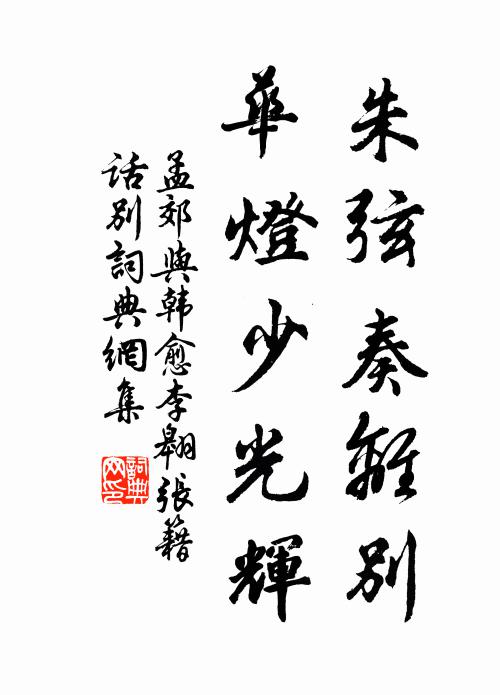 朱弦奏離別
華燈少光輝
孟郊與韩愈李翱張籍
话別詞典網集
詞典
网印